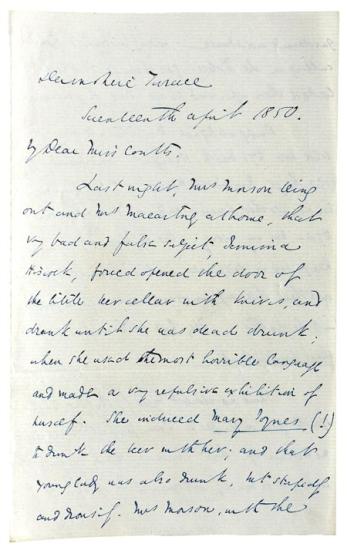 Devonshire Terrace
Seventeenth April 1850.
My Dear Miss Coutts.
Last night, Mrs Morson being
out and Mrs Macartney at home, that
very bad and false subject, Jemima
Hiscock, forced opened the door of
the little beer cellar with knives, and
drank until she was dead drunk;
when she used the most horrible language
and made a very repulsive exhibition of
herself. She induced Mary Joynes (!)
to drink the beer with her; and that
young lady was also drunk, but stupidly
and drowsily. Mrs Morson, with the